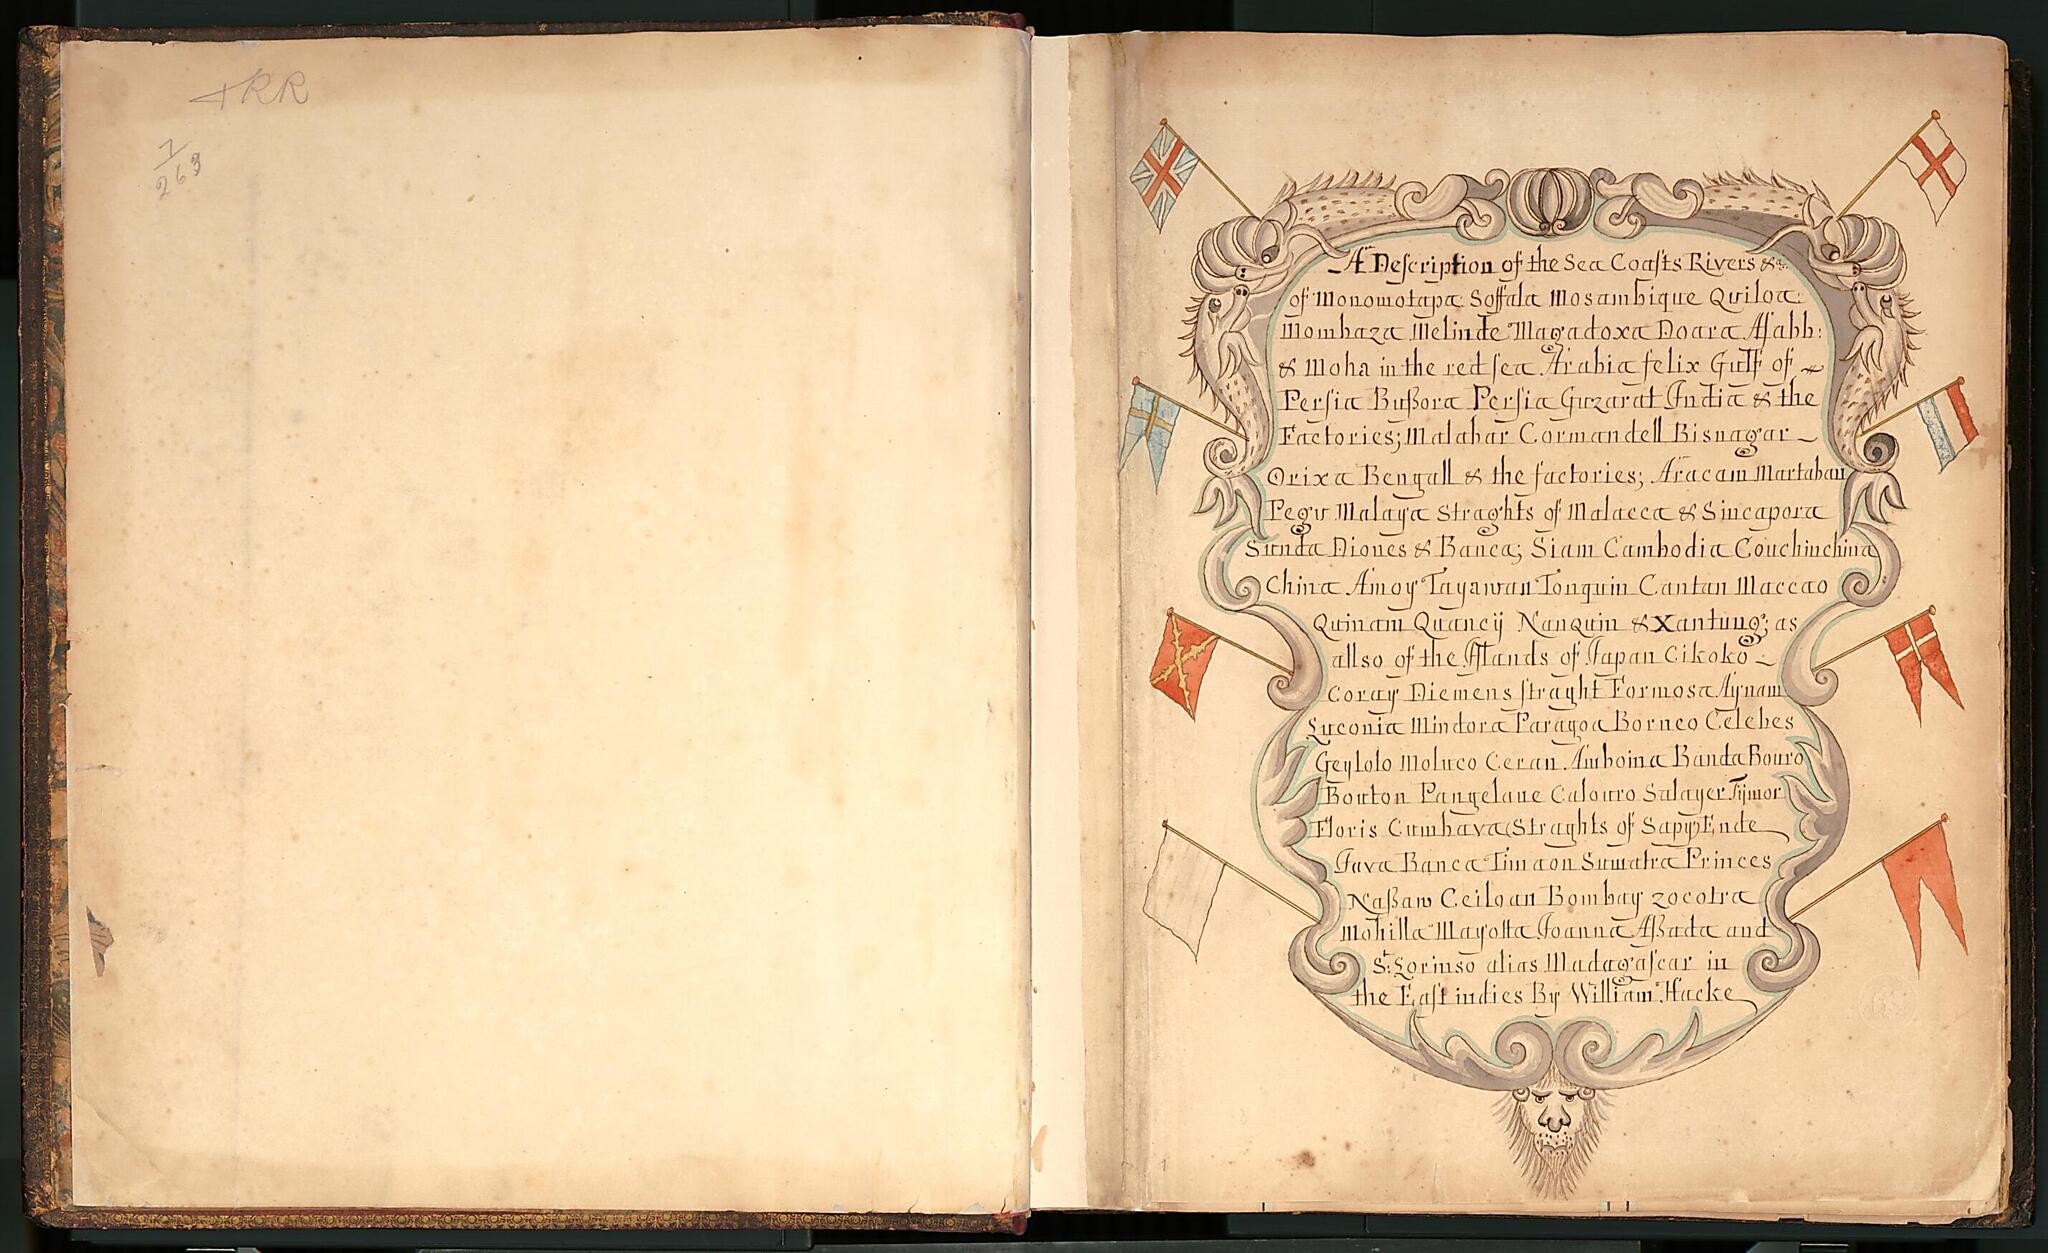 RR
1
263
A Description of the Sea Coasts Rivers &c.
of Monomotapa Soffala Mosambique Quiloa:
Mombaza Melinde Magadoxa Doara Asabb:
& Moha in the red sea Arabia felix Gulf of
Persia Bußora Persia Guzarat India & the
Factories; Malabar Cormandell Bisnagar
Orixa Bengall & the factories; Aracam Martaban
Pegu Malaya Straghts of Malacca & Sincapora
Sunda Diones & Banca; Siam Cambodia Couchinchina
China Amoy Tayawan Tonquin Cantan Maccao
Quinam Quancij Nanquin & Xantung; as
allso of the Islands of Japan Cikoko
Coray Diemens straght Formosa Aynam
Luconia Mindora Paragoa Borneo Celebes
Geylolo Moluco Ceran Amboina Banda Bouro
Bouton Pangelane Calouro Salayer Tijmor
Floris Cumbava (Straghts of Sapy) Ende
Java Banca Timaon Sumatra Princes
Naßaw Ceiloan Bombay zocotra
Mohilla Mayotta Joanna Aßada and
St: Lorinso alias Madagascar in
the East indies By William Hacke